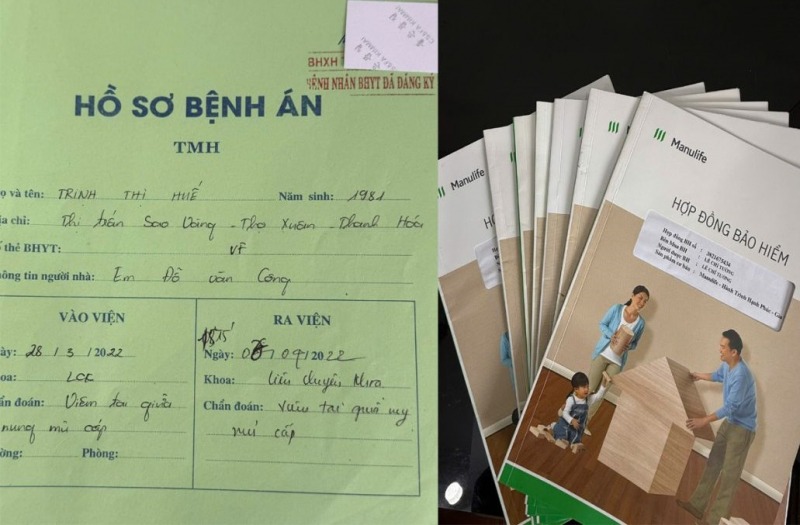 BHXH
BỆNH NHÂN BHYT ĐÃ ĐĂNG KÝ
HỒ SƠ BỆNH ÁN
TMH
ọ và tên: TRỊNH THỊ HUẾ Năm sinh: 1981
ịa chỉ: Thị trấn Sao Vàng - Thọ Xuân - Thanh Hóa
ố thẻ BHYT:
ông tin người nhà: Em Đỗ Văn Công
VÀO VIỆN
gày: 28 / 3 / 2022
hoa: LCK
hẩn đoán: Viêm tai giữa
nung mủ cấp
ường: Phòng:
RA VIỆN
Ngày: /09/2022
Khoa: Liên chuyên khoa
Chẩn đoán: viêm tai giữa
cấp
Manulife
Manulife
HỢP ĐỒNG BẢO HIỂM
Hợp đồng BH số :
Bên Mua BH : LÊ CHÍ TƯỜNG
Người được BH : LÊ CHÍ TƯỜNG
Sản phẩm cơ bản : Manulife - Hành Trình Hạnh Phúc - Gia